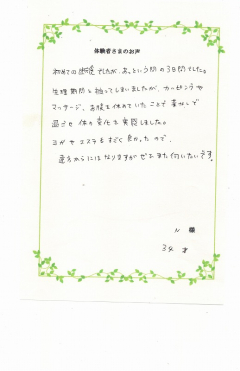 体験者さまのお声
初めての断食でしたが、あっという間の3日間でした。
生理期間と被ってしまいましたが、カッピングや
マッサージ、お腹を休めていたことで楽しく
過ごせ 体の変化を実感しました。
ヨガや エステもすごく良かったので、
遠方からにはなりますが ぜひまた伺いたいです。
N 様
34 才